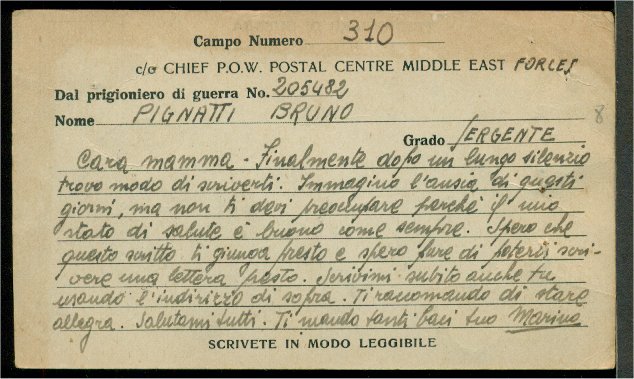 Campo Numero 310
c/o CHIEF P.O.W. POSTAL CENTRE MIDDLE EAST FORCES
Dal prigioniero di guerra No. 205482
Nome PIGNATTI BRUNO
8
Grado SERGENTE
Cara mamma - Finalmente dopo un lungo silenzio
trovo modo di scriverti. Immagino l'ansia di questi
giorni, ma non ti devi preocupare perché il mio
stato di salute è buono come sempre. Spero che
questo scritto ti giunga presto e spero pure di poterti scri-
vere una lettera presto. Scrivimi subito anche tu
usando l'indirizzo di sopra. Ti racomando di stare
allegra. Salutami tutti. Ti mando tanti baci tuo Marino
SCRIVETE IN MODO LEGGIBILE